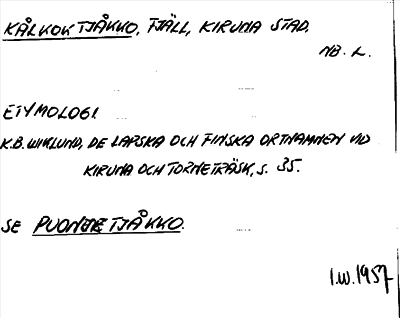 KÅLKOK TJÅKKO, FJÄLL, KIRUNA STAD.
NB. L.
ETYMOLOGI
K.B. WIKLUND, DE LAPSKA OCH FINSKA ORTNAMNEN VID
KIRUNA OCH TORNETRÄSK, S. 35.
SE PUONJETJÅKKO.
I.W. 1957